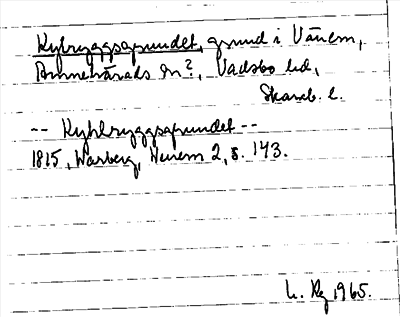 Kylryggsgrundet, grund i Vänern,
Brunnehärads sn?, Vadsbo hd,
Skarab. l.
-- Kyhlryggsgrundet --
1815, Warberg, Wenern 2, s. 143.
1965.